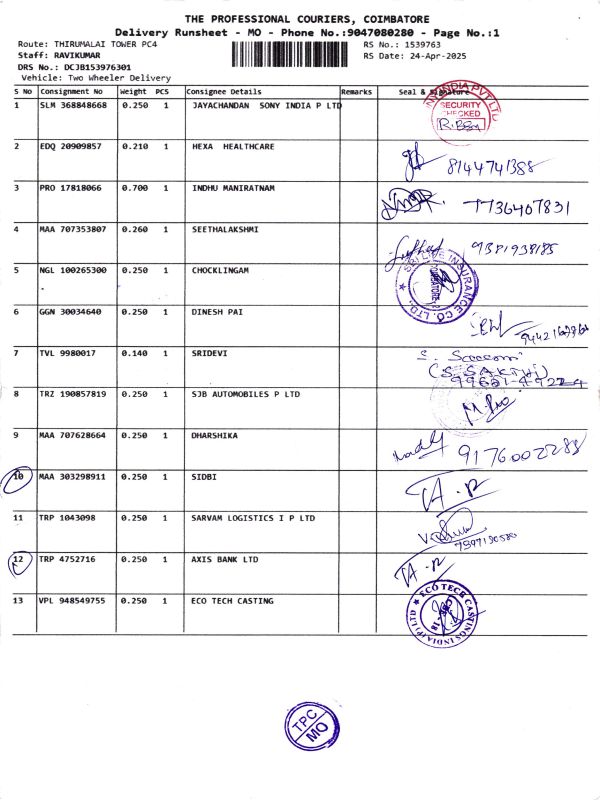 THE PROFESSIONAL COURIERS, COIMBATORE
Delivery Runsheet - MO - Phone No.:9047080280 - Page No.:1
Route: THIRUMALAI TOWER PC4
RS No.: 1539763
Staff: RAVIKUMAR
RS Date: 24-Apr-2025
DRS No.: DCJB153976301
Vehicle: Two Wheeler Delivery
S No Consignment No Weight PCS Consignee Details Remarks Seal & Signature
1 SLM 368848668 0.250 1 JAYACHANDAN SONY INDIA P LTD
SECURITY
CHECKED
2 EDQ 20909857 0.210 1 HEXA HEALTHCARE
8144741388
3 PRO 17818066 0.700 1 INDHU MANIRATNAM
7736407831
4 MAA 707353807 0.260 1 SEETHALAKSHMI
9381938185
5 NGL 100265300 0.250 1 CHOCKLINGAM
-
SRI LIFE INSURANCE CO. LTD.
6 GGN 30034640 0.250 1 DINESH PAI
7 TVL 9980017 0.140 1 SRIDEVI
(S. SAKTHI)
8 TRZ 190857819 0.250 1 SJB AUTOMOBILES P LTD
9 MAA 707628664 0.250 1 DHARSHIKA
9176002288
10 MAA 303298911 0.250 1 SIDBI
11 TRP 1043098 0.250 1 SARVAM LOGISTICS I P LTD
12 TRP 4752716 0.250 1 AXIS BANK LTD
13 VPL 948549755 0.250 1 ECO TECH CASTING
ECO TECH CASTINGS INDIA (P) LTD
CBE-18
TPC
MO